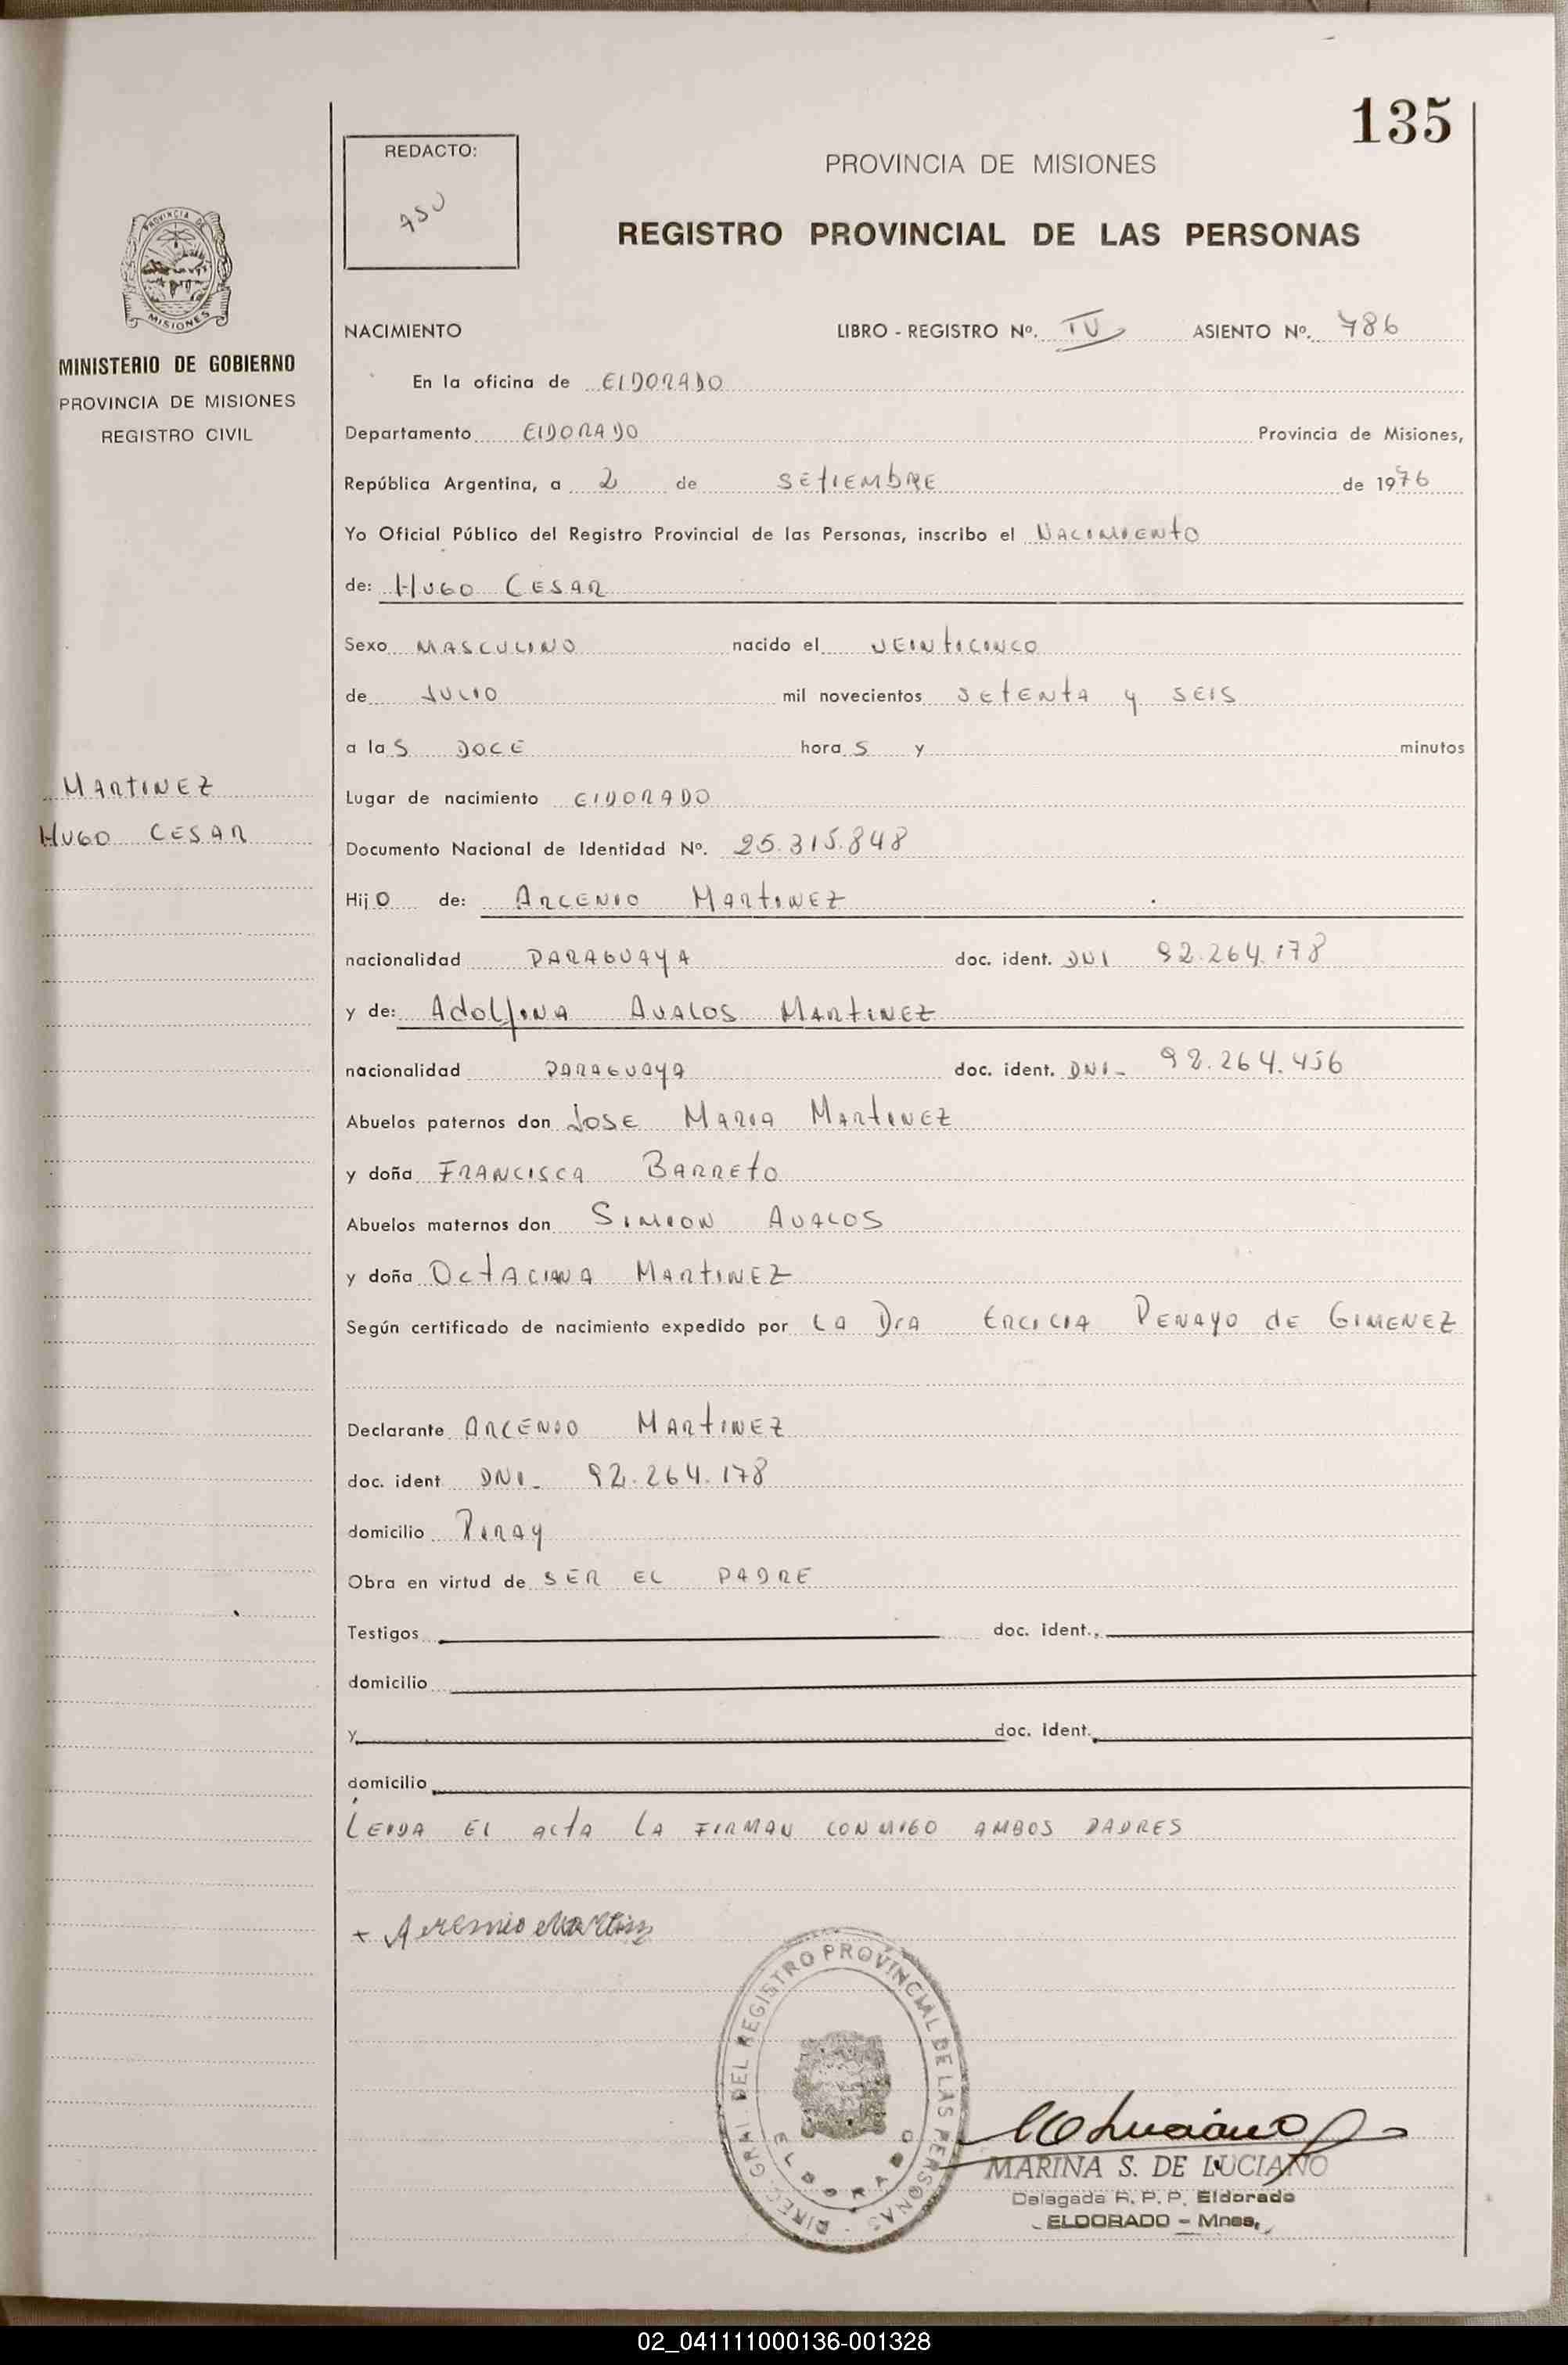 135
REDACTO:
PROVINCIA DE MISIONES
REGISTRO PROVINCIAL DE LAS PERSONAS
PROVINCIA DE
MISIONES
MINISTERIO DE GOBIERNO
PROVINCIA DE MISIONES
REGISTRO CIVIL
MARTINEZ
HUGO CESAR
NACIMIENTO LIBRO - REGISTRO Nº. IV ASIENTO Nº. 786
En la oficina de ElDORADO
Departamento ElDORADO Provincia de Misiones,
República Argentina, a 2 de SEtIEMbRE de 1976
Yo Oficial Público del Registro Provincial de las Personas, inscribo el NACIMIENtO
de: HUGO CESAR
Sexo MASCULINO nacido el VEINtICINCO
de JULIO mil novecientos SEtENtA y SEIS
a las DOCE horas y minutos
Lugar de nacimiento ElDORADO
Documento Nacional de Identidad Nº. 25.315.848
Hijo de: ARCENIO MARtINEZ
nacionalidad PARAGUAYA doc. ident. DNI 92.264.178
y de: AdOLfINA AVALOS MARtINEZ
nacionalidad PARAGUAYA doc. ident. DNI- 92.264.456
Abuelos paternos don JOSE MARIA MARtINEZ
y doña FRANCISCA BARREtO
Abuelos maternos don SIMION AVALOS
y doña OCtACIANA MARtINEZ
Según certificado de nacimiento expedido por LA DrA ERCICIA PENAYO dE GIMENEZ
Declarante ARCENIO MARtINEZ
doc. ident DNI- 92.264.178
domicilio PIRAY
Obra en virtud de SER EL PADRE
Testigos doc. ident.
domicilio
y doc. ident.
domicilio
LEIDA El ActA LA FIRMAN CONMIGO AMBOS PADRES
DIREC. GRAL. DEL REGISTRO PROVINCIAL DE LAS PERSONAS -
ELDORADO
MARINA S. DE LUCIANO
Delegada R. P. P. Eldorado
ELDORADO - Mnes.
02_041111000136-001328